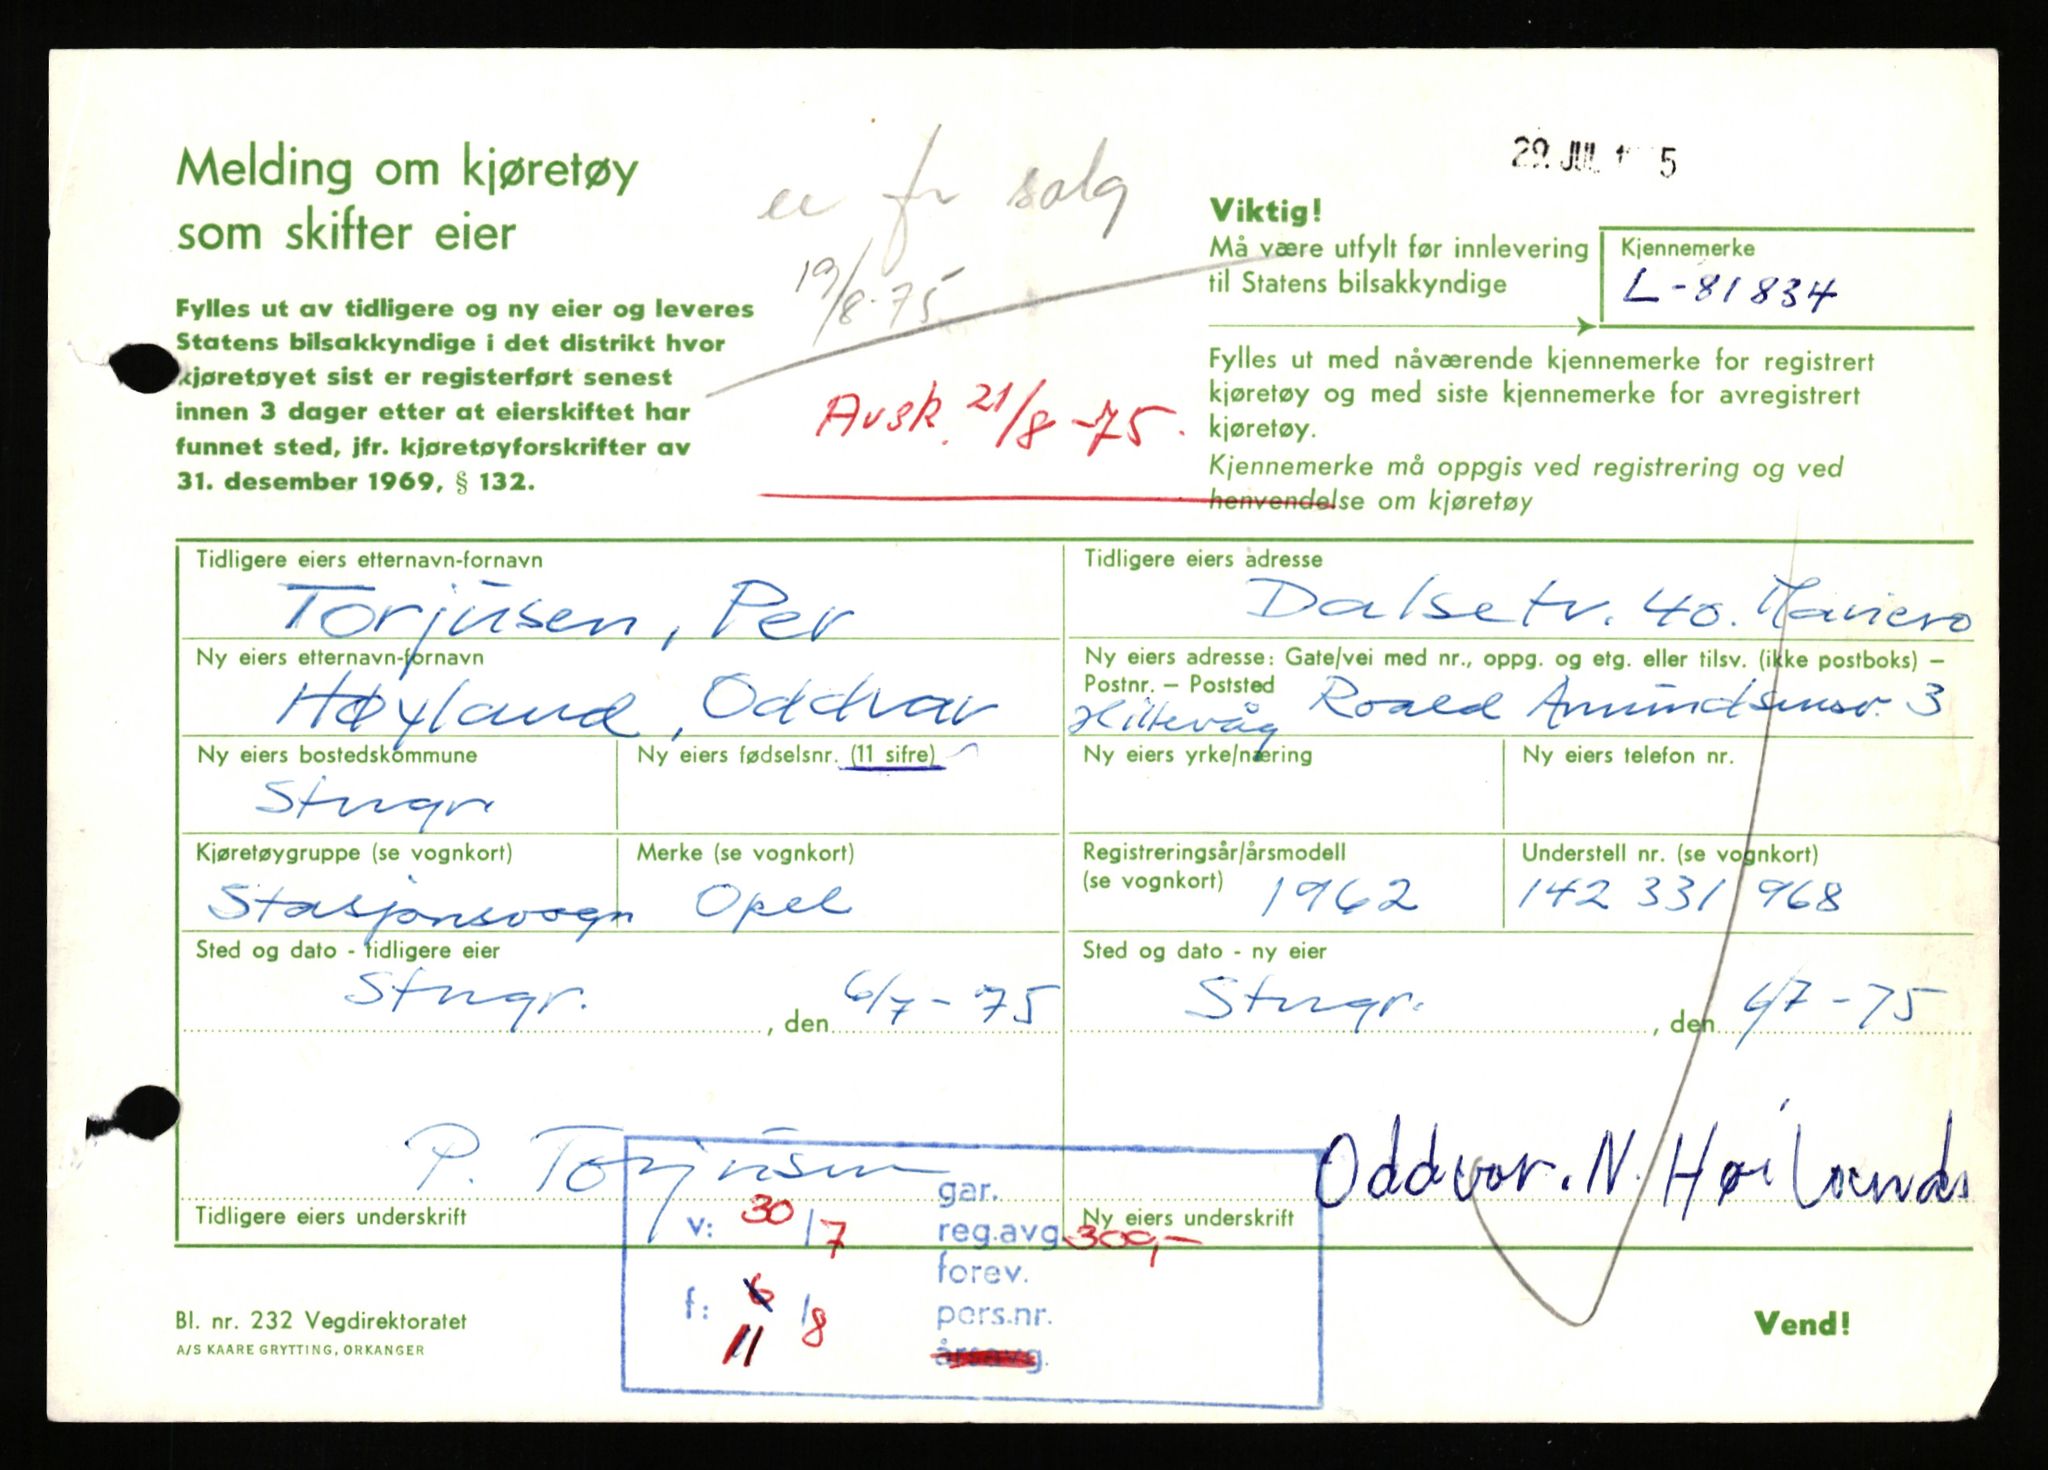 Melding om kjøretøy
som skifter eier
Fylles ut av tidligere og ny eier og leveres
Statens bilsakkyndige i det distrikt hvor
kjøretøyet sist er registerført senest
innen 3 dager etter at eierskiftet har
funnet sted, jfr. kjøretøyforskrifter av
31. desember 1969, § 132.
salg
19/8-75
Avsk. 21/8-75.
29. JUL 1 5
Viktig!
Må være utfylt før innlevering
til Statens bilsakkyndige
Kjennemerke
L-81834
Fylles ut med nåværende kjennemerke for registrert
kjøretøy og med siste kjennemerke for avregistrert
kjøretøy.
Kjennemerke må oppgis ved registrering og ved
henvendelse om kjøretøy
Tidligere eiers etternavn-fornavn
Torjusen, Per
Tidligere eiers adresse
Dalsetv. 40.
Ny eiers etternavn-fornavn
Høyland, Oddvar
Ny eiers adresse: Gate/vei med nr., oppg. og etg. eller tilsv. (ikke postboks) –
Postnr. – Poststed
Hillevåg Roald Amundsensv. 3
Ny eiers bostedskommune
Stvgr.
Ny eiers fødselsnr. (11 sifre)
Ny eiers yrke/næring
Ny eiers telefon nr.
Kjøretøygruppe (se vognkort)
Stasjonsvogn
Merke (se vognkort)
Opel
Registreringsår/årsmodell
(se vognkort)
1962
Understell nr. (se vognkort)
142 331 968
Sted og dato - tidligere eier
Stvgr. , den 6/7-75
Sted og dato - ny eier
Stvgr. , den 6/7-75
P. Torjusen
Tidligere eiers underskrift
Oddvar. N. Høilands
Ny eiers underskrift
v: 30/7
f: 6/8
11
gar.
reg.avg. 300,-
forev.
pers.nr.
årsavg.
Bl. nr. 232 Vegdirektoratet
A/S KAARE GRYTTING, ORKANGER
Vend!